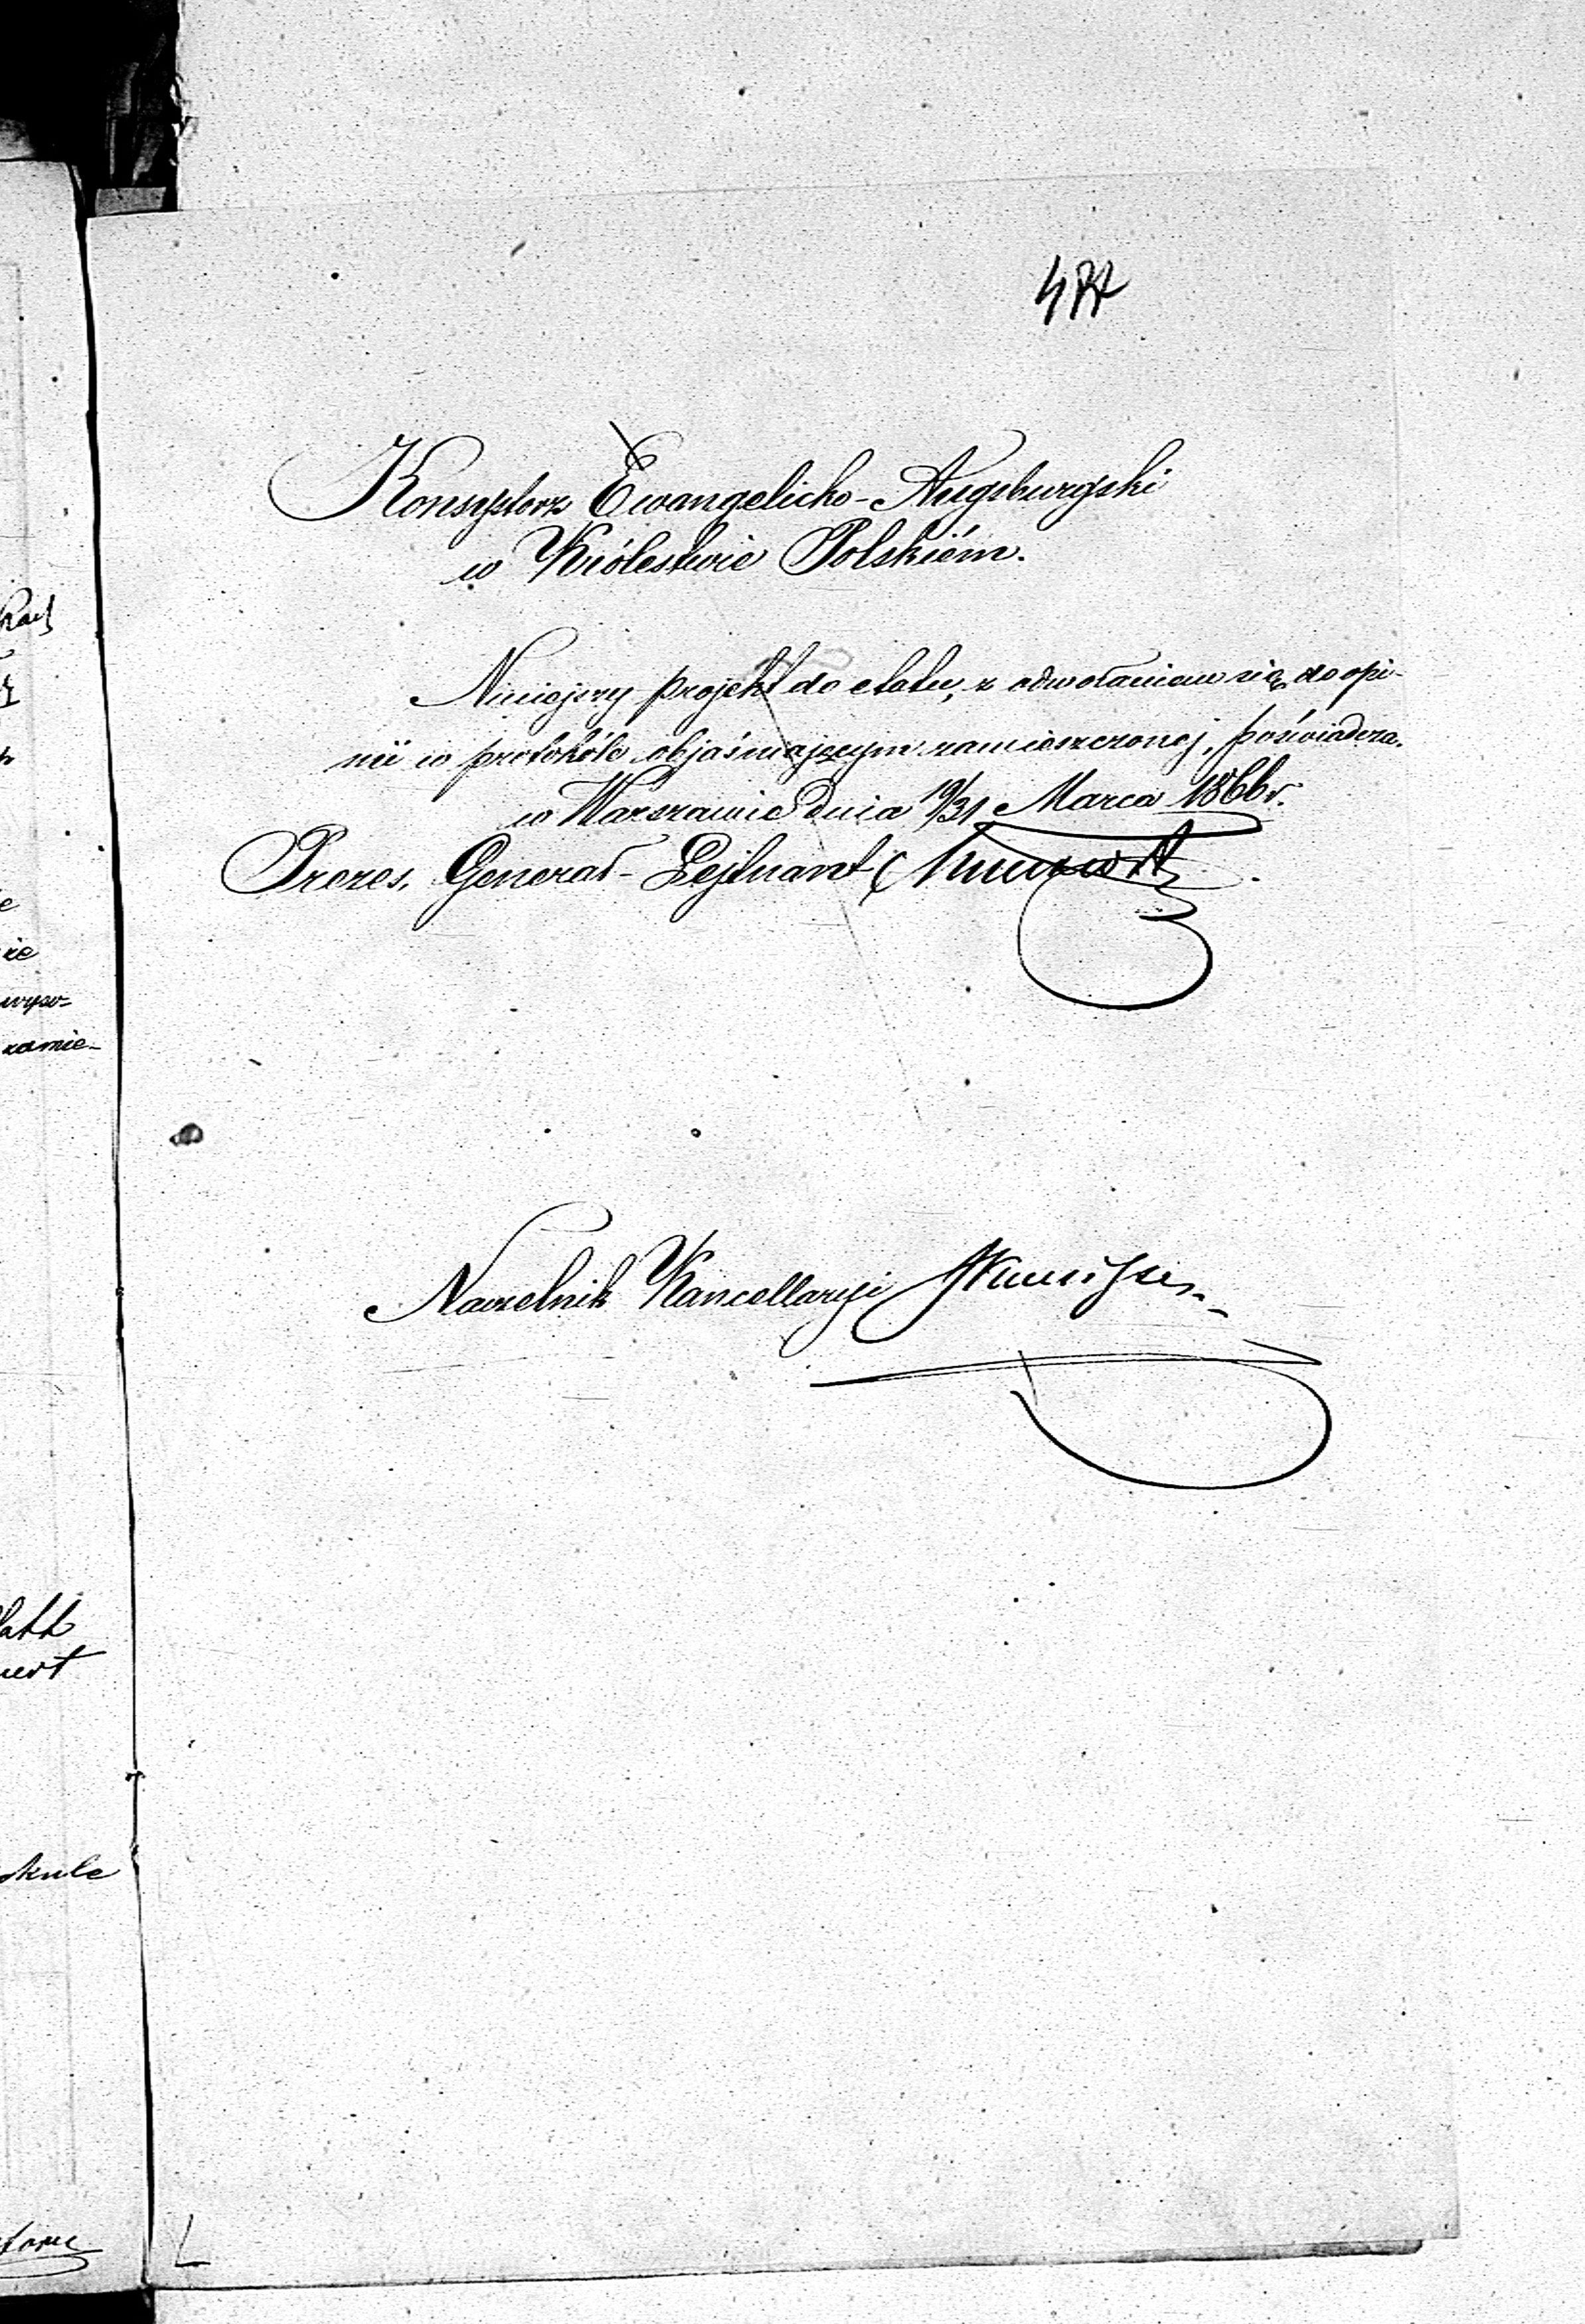 Konsystorz Ewangelicko-Augsburgski
w Królestwie Polskiém.
Niniejszy projekt do etatu, z odwołaniem się do opi-
nii w protokóle objaśniającym zamieszczonej, poświadcza.
w Warszawie dnia 19/31 Marca 1866 r.
Prezes, Generał-Lejtnant
Naczelnik Kancellaryi
że
wyso-
zamie-